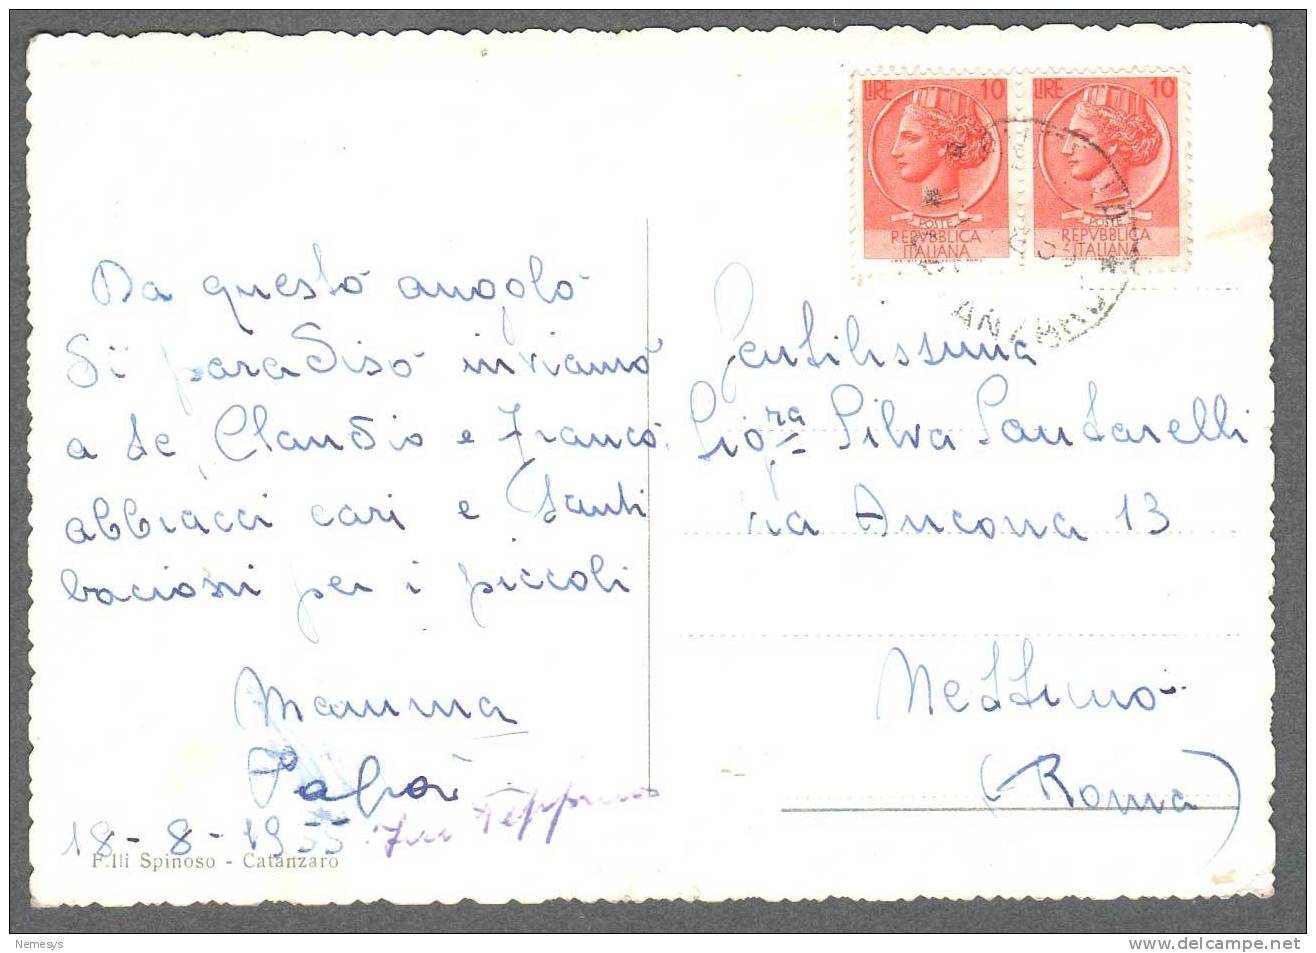 LIRE 10
POSTE
REPVBBLICA
ITALIANA
LIRE 10
POSTE
REPVBBLICA
ITALIANA
Da questo angolo
di paradiso inviamo
a te, Claudio e Franco
abbracci cari e tanti
bacioni per i piccoli
Mamma
Papà
Peppino
18-8-1955
F.lli Spinoso - Catanzaro
Gentilissima
Sig.ra Silva Santarelli
via Ancona 13
Nettuno
(Roma)
Nemesys
www.delcampe.net